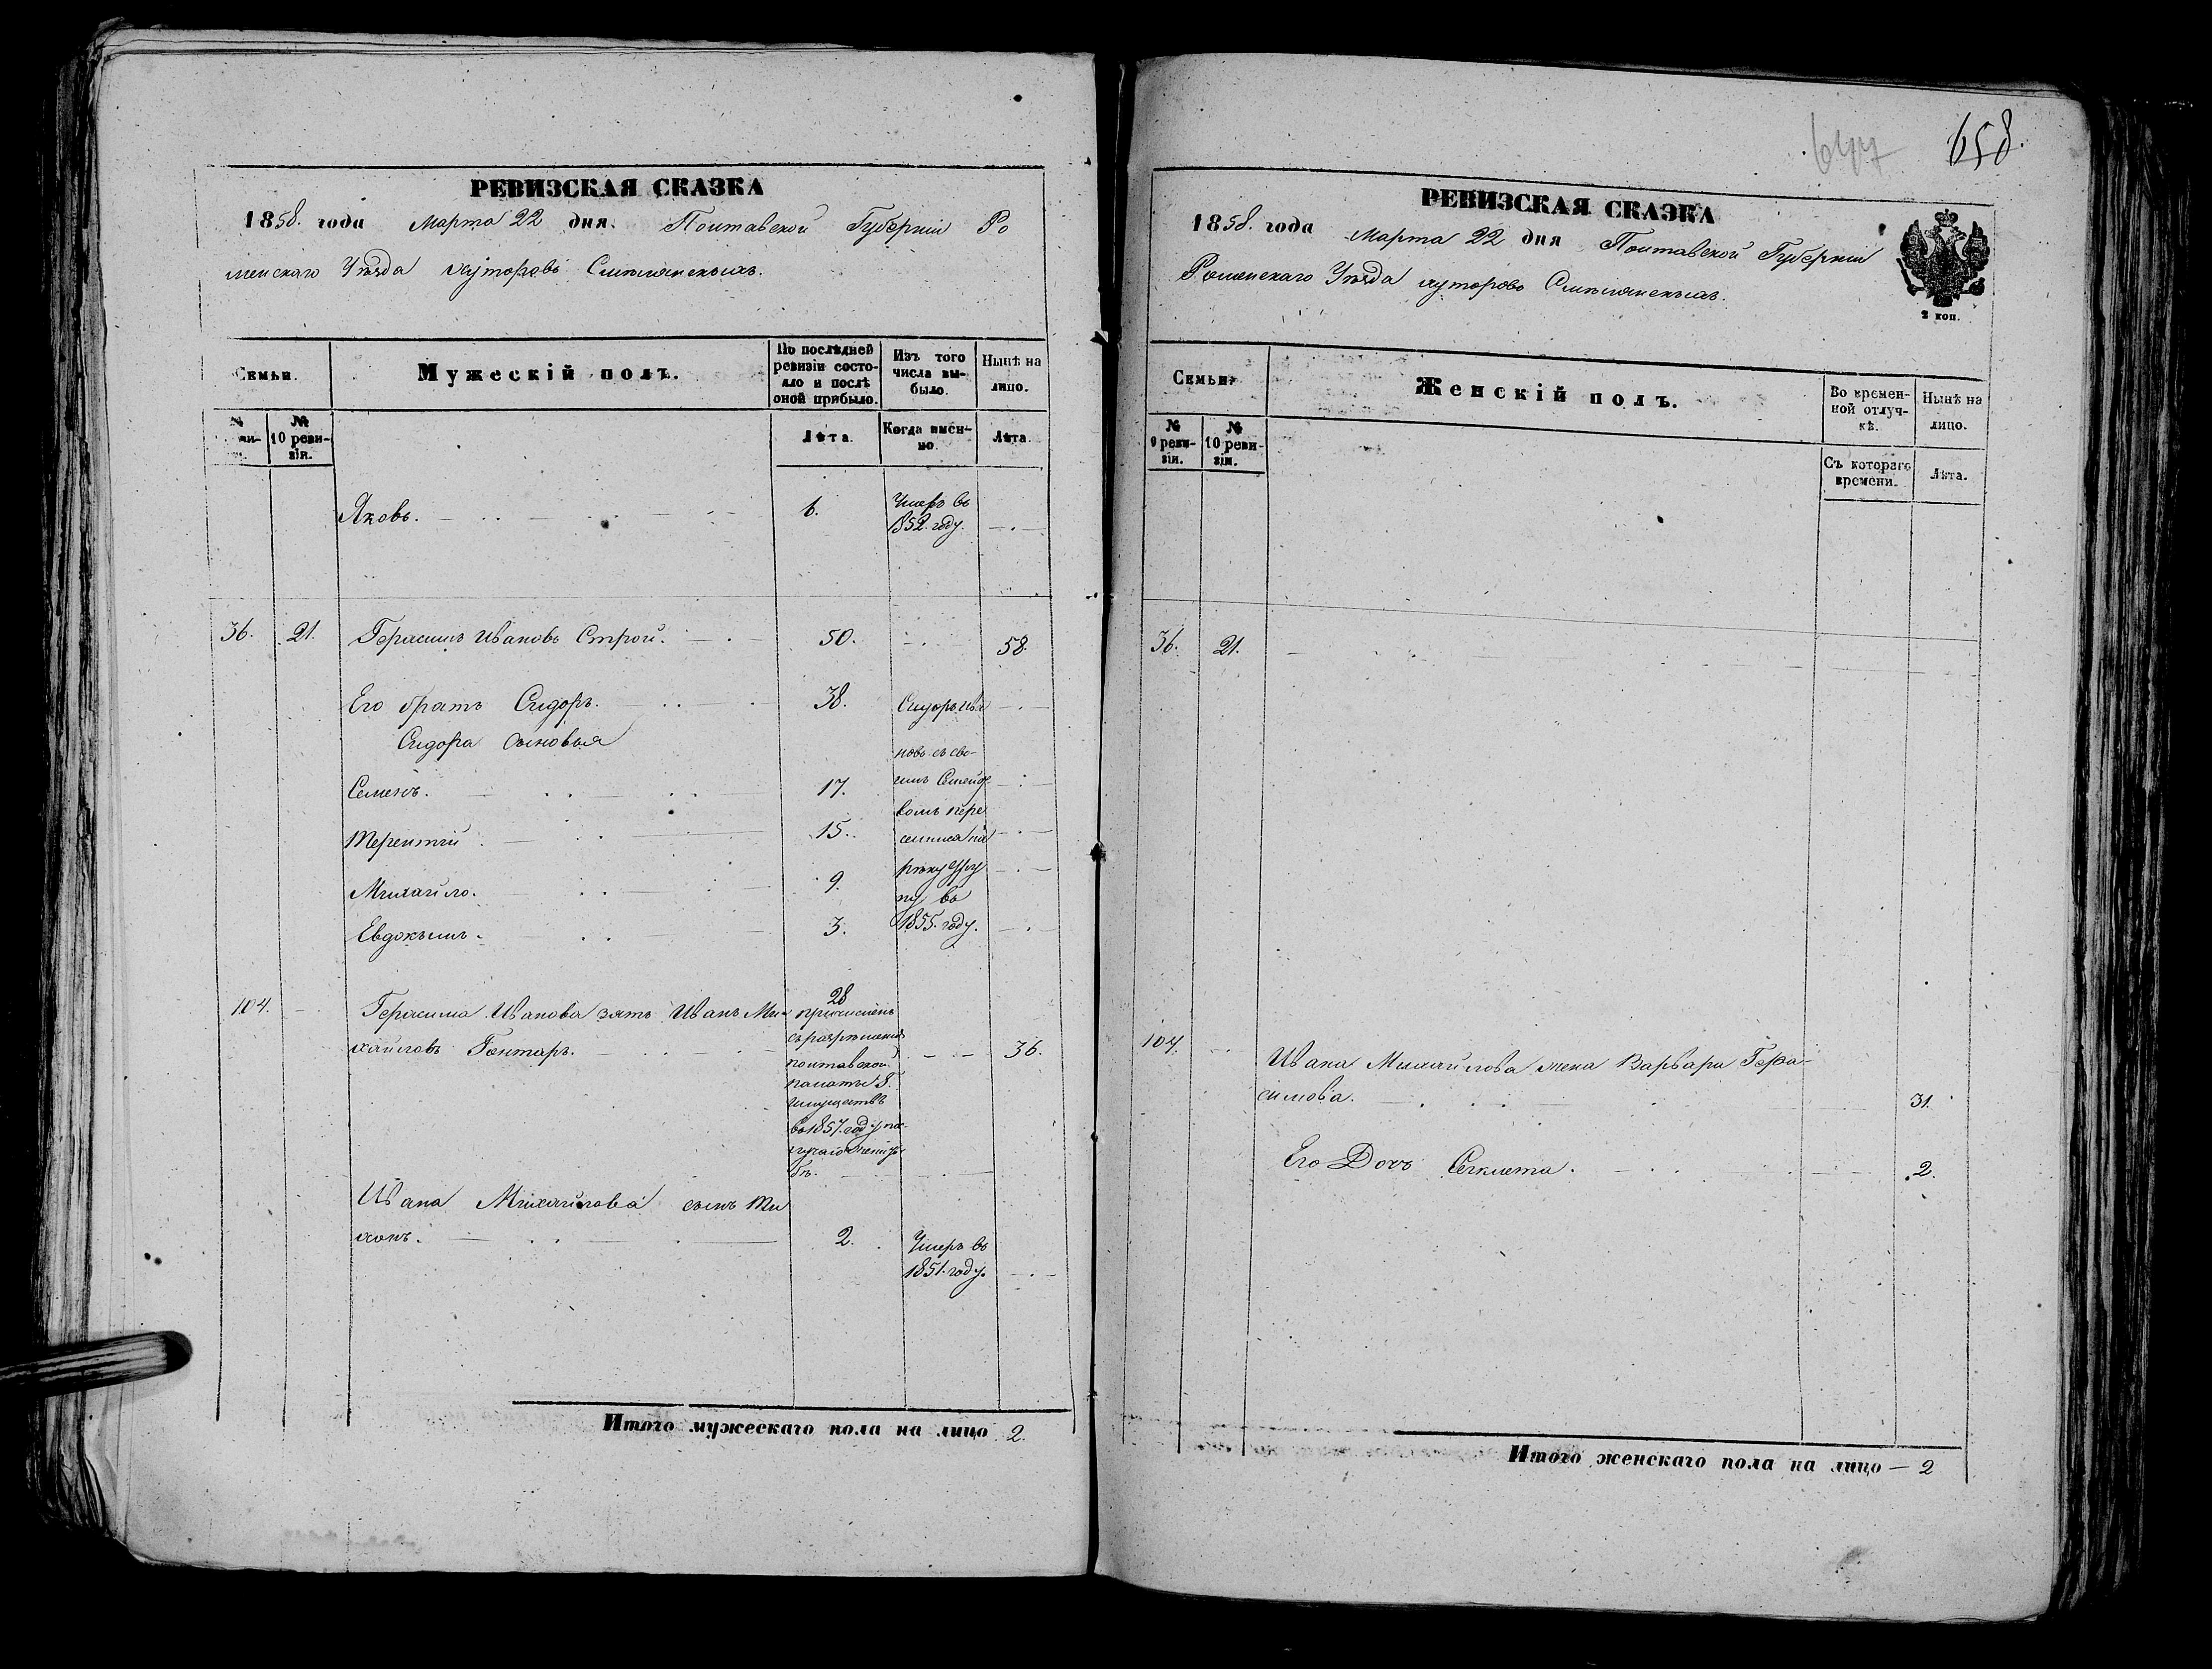 РЕВИЗСКАЯ СКАЗКА
1858. года Марта 22 дня. Полтавской Губерніи Ро
менскаго Уѣзда хуторовъ
Семьи.
Мужескій полъ.
По послѣдней ревизіи состояло и послѣ оной прибыло.
Изъ того числа выбыло.
Нынѣ на лицо.
№
№ 10 ревизіи.
Лѣта.
Когда именно.
Лѣта.
Яковъ. 6. Умеръ въ
1852. году.
36. 21. Герасимъ Ивановъ Строй. 50. 58.
Его братъ Сидоръ. 38. Сидоръ Ива
Сидора сыновья
новъ съ сво-
Семенъ. 17. имъ Семейст
вомъ пере
Терентій 15. селился на
рѣку
Михайло. 9.
въ
Евдокимъ. 3. 1855. году.
104. Герасима Иванова зять Иванъ Ми- 28 причисленъ
съ разрѣшенія
хайловъ Гонтарь. 36.
полтавской
палаты Г.
имуществъ
въ 1857. году по
случаю женидь
бы.
Ивана Михайлова сынъ Ти
хонъ. 2. Умеръ въ
1851. году.
Итого мужескаго пола на лицо 2.
647 658.
РЕВИЗСКАЯ СКАЗКА
1858. года Марта 22 дня Полтавской Губерніи
Роменскаго Уѣзда хуторовъ
2 коп.
Семьи.
Женскій полъ.
Во временной отлучкѣ.
Нынѣ на лицо.
№ 9 ревизіи.
№ 10 ревизіи.
Съ котораго времени.
Лѣта.
36. 21.
104. Ивана Михайлова жена Варвара Гера-
симова. 31.
Его Дочь Секлета. 2.
Итого женскаго пола на лицо — 2